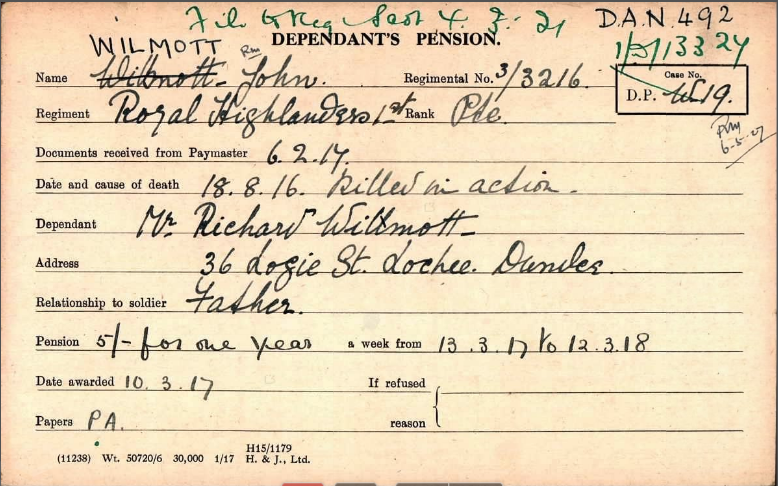 File to Reg Scot 4. 3. 21
D.A.N. 492
WILMOTT Rm DEPENDANT'S PENSION.
1/5/133 24
Name Willmott John. Regimental No. 3/3216.
Case No.
D.P. 19.
Regiment Royal Highlanders 1st Rank Pte.
Rm
Documents received from Paymaster 6.2.17.
Date and cause of death 18.8.16. Killed in action.
Dependant Mr Richard Willmott
Address 36 Logie St. Lochee. Dundee.
Relationship to soldier Father.
Pension 5/- for one year a week from 13.3.17 to 12.3.18
Date awarded 10.3.17 If refused
Papers P.A. reason
H15/1179
(11238) Wt. 50720/6 30,000 1/17 H. & J., Ltd.